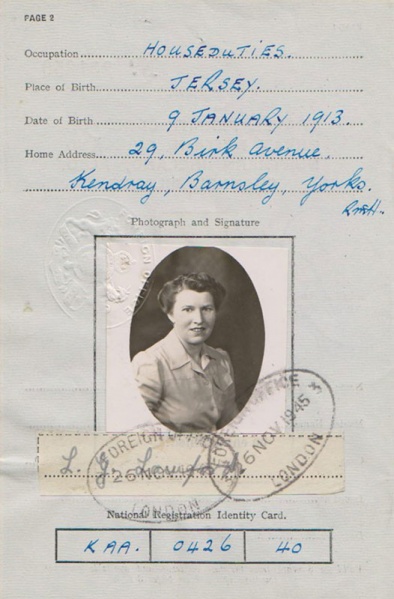 PAGE 2
Occupation HOUSEDUTIES.
Place of Birth JERSEY.
Date of Birth 9 JANUARY 1913.
Home Address 29, Birk Avenue,
Kendray, Barnsley, Yorks.
Photograph and Signature
FOREIGN OFFICE 3
26 NOV 1945
LONDON
FOREIGN OFFICE
26 NOV 1945
LONDON
L.
National Registration Identity Card.
KAA. 0426 40